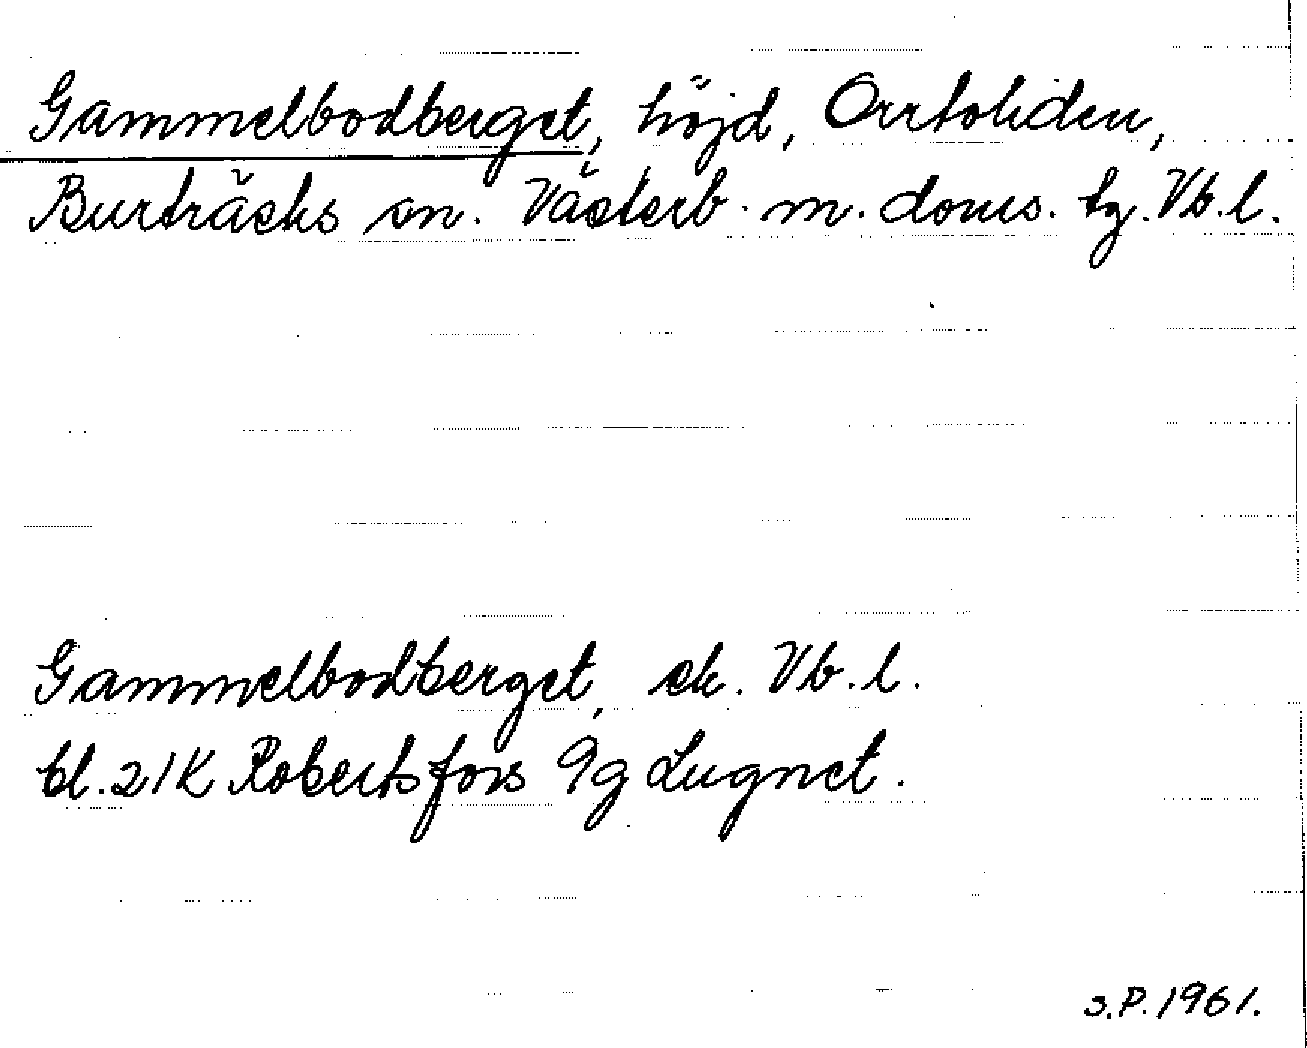 Gammelbodberget, höjd, Orrtoliden,
Burträsks sn. Västerb. m. doms. tg. Vb. l.
Gammelbodberget, ek. Vb. l.
bl. 21K Robertsfors 9g Lugnet.
s.P. 1961.